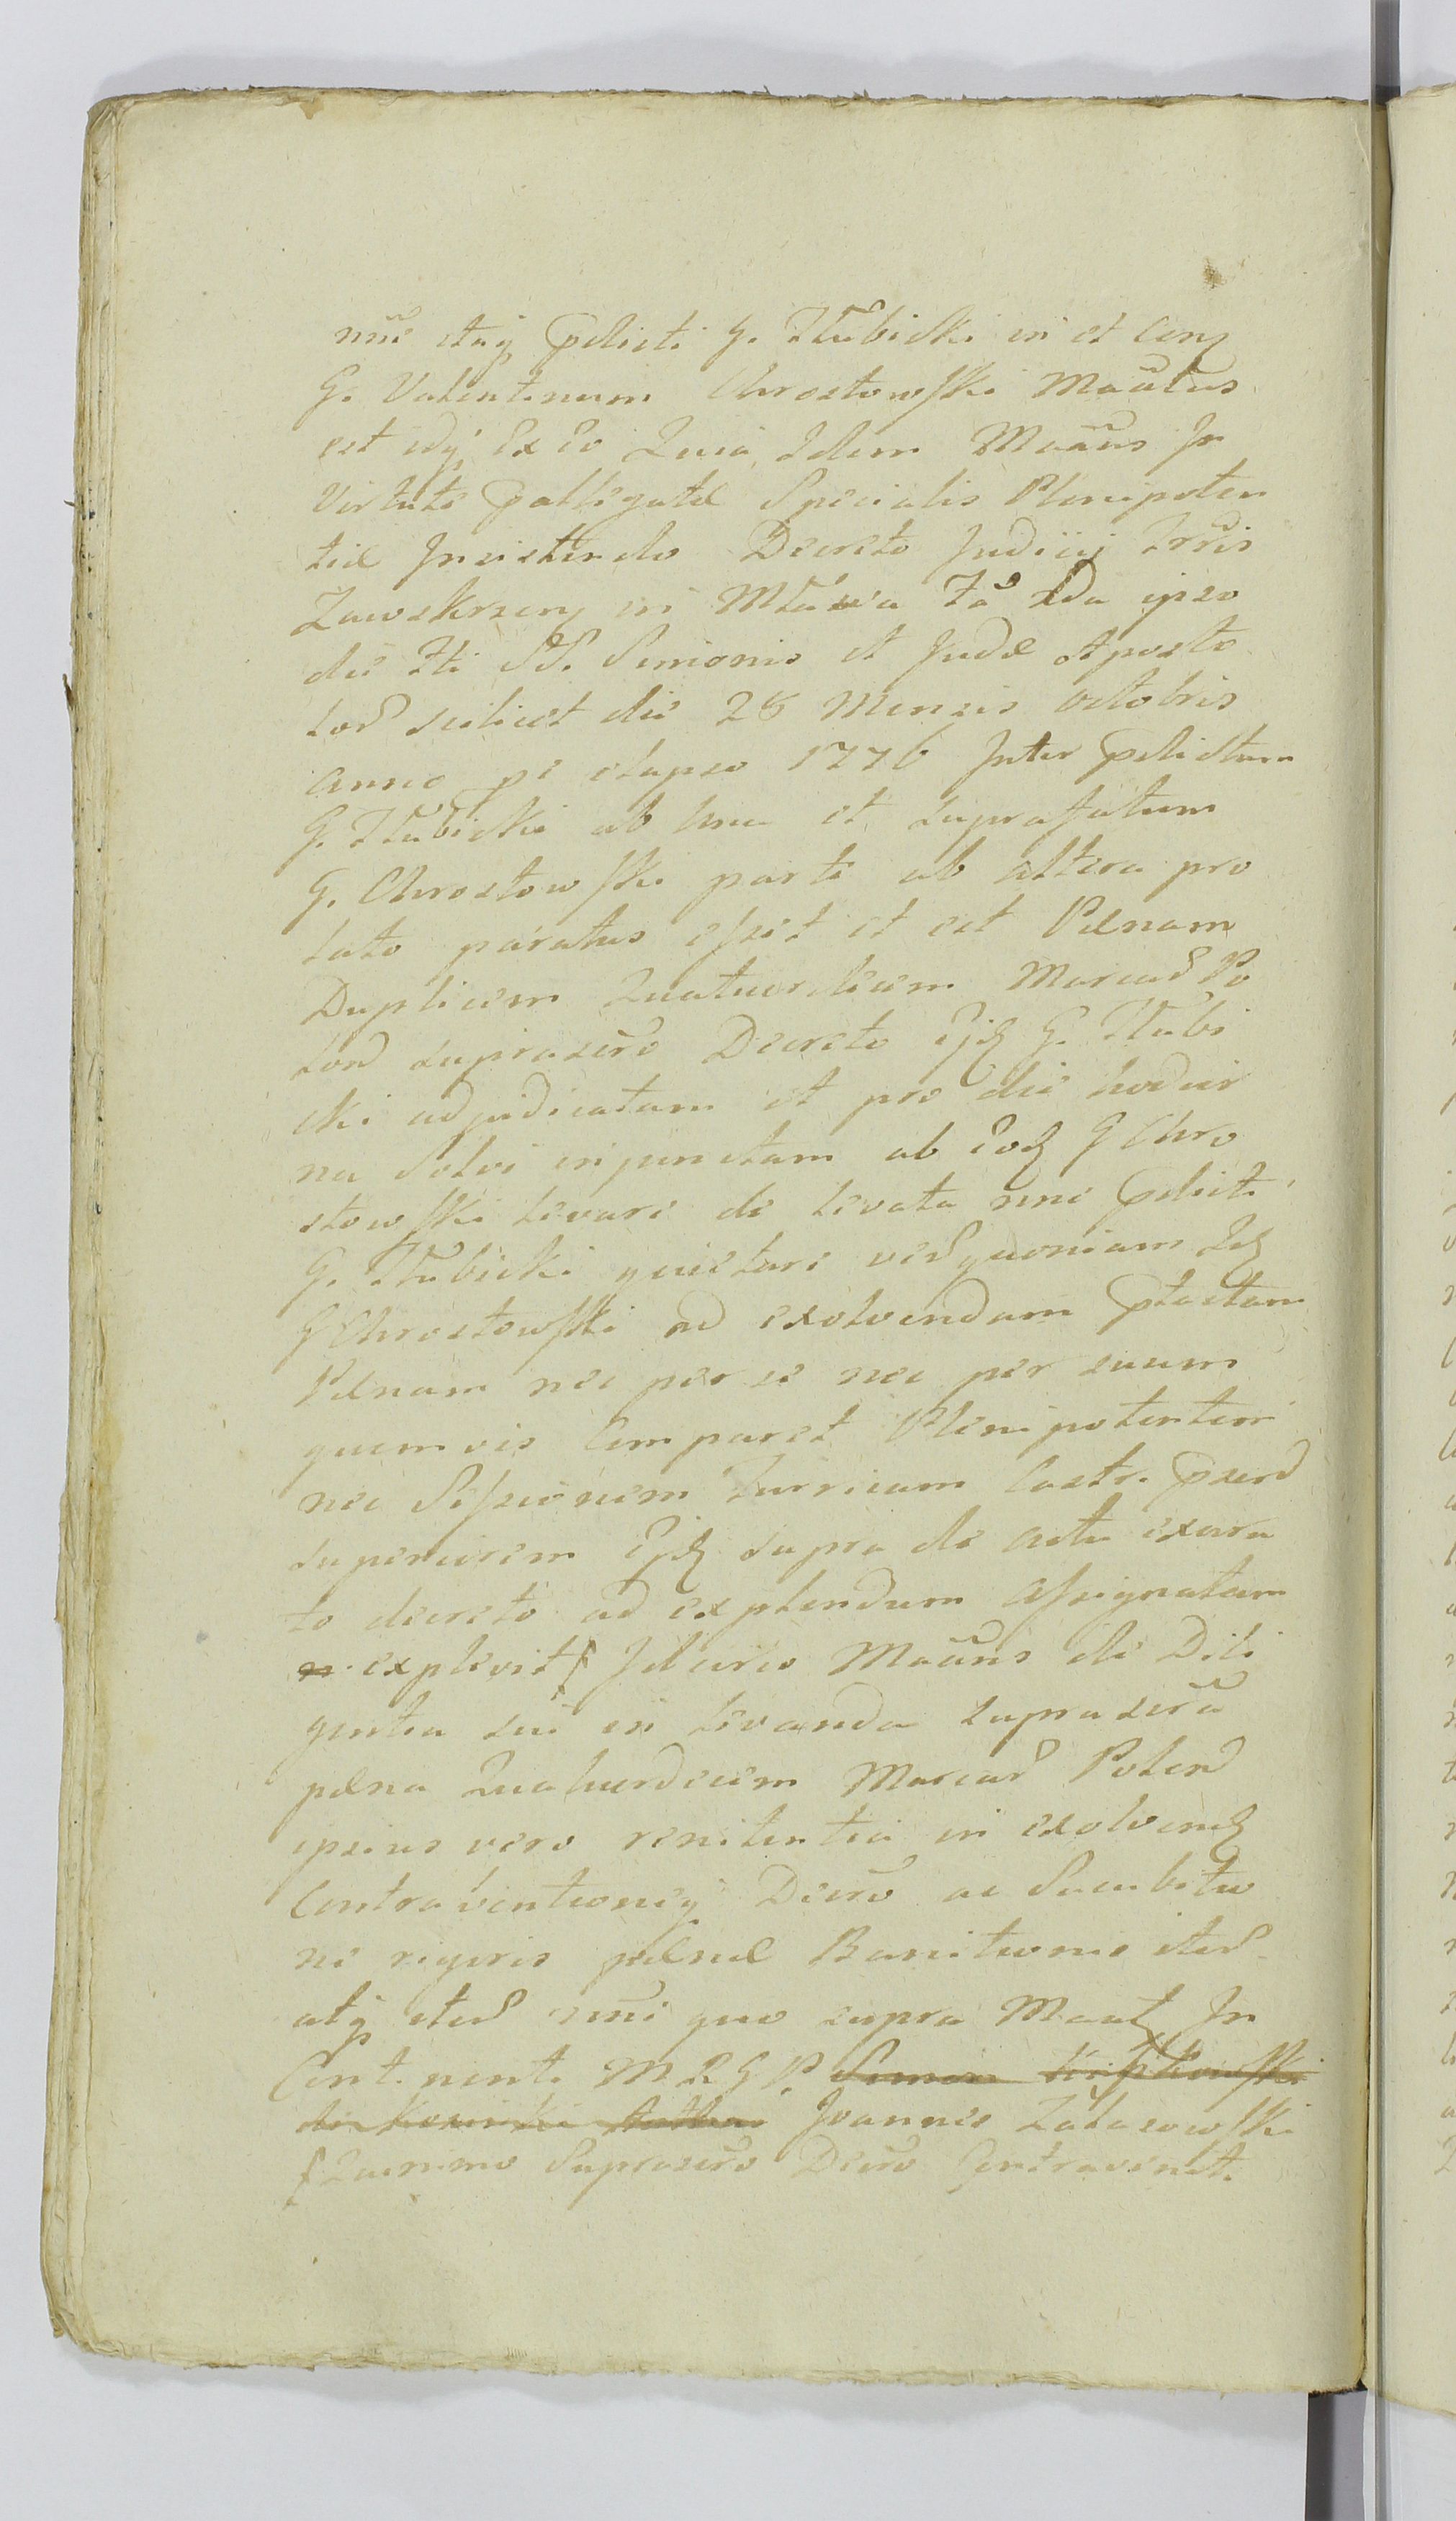 nne atq pdicti G. Tłubicki in et Con
G. Valentinum Chrostowski Maãtus
est idq Ex Eo Quia Idem Maãns In
Virtute pallegatæ Specialis Plenipoten
tiæ Insistendo Decreto Judicij Trris
Zawskrzen in Mława Fã Zda ipso
die Fti SS. Simonis et Judæ Aposto
lor scilicet die 28 Mensis Octobris
Anno pe elapso 1776 Inter pdictum
G. Tłubicki ab una et suprafatum
G. Chrostowski parte ab altera pro
lato paratus esset et est Pænam
Duplicem Quatuordecim Marcar Po
lon suprascro Decreto Ejd G. Tłubi
cki adjudicatam et pro die hodier
na Solvi injunctam ab Eod G Chro
stowski levare de levata nne pdicti
G. Tłubicki quietare ver quoniam Id
G Chrostowski ad exolvendam ptactam
Pænam nec per se nec per suum
quemvis Comparet Plenipotentem
nec Sessionem Turricam Castr. Pxen
superiorem Ejd supra de actu exara
to decreto ad explendum Assignatam
n. explevit Idcirco Maãns de Dili
gentia sui in levanda suprascra
pæna Quatuordecim Marcar Polon
ipsius vero renitentia in exolvend
Contraventioneq Decro ac Succubitio
ne rigoris pænæ Banitionis iter
atq iter nne quo supra Maat In
Cont. nent. M R G P. Simon
Joannes Zalasowski
Quinimo Suprascro Decro Contravenit.